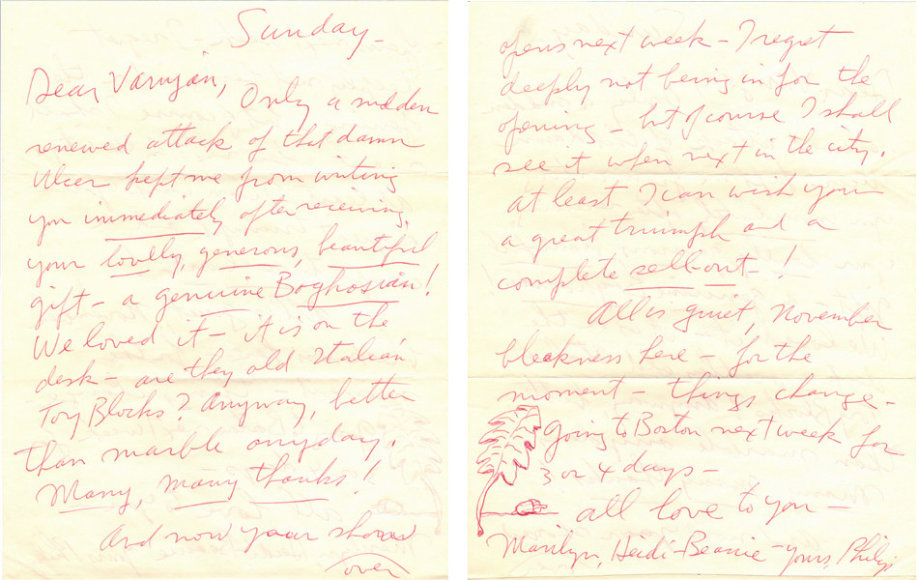 Sunday -
Dear Varujan,
Only a sudden
renewed attack of that damn
Ulcer kept me from writing
you immediately after receiving
your lovely, generous, beautiful
gift - a genuine Boghosian!
We loved it - it is on the
desk - are they old Italian
Toy Blocks? Anyway, better
than marble anyday.
Many, many thanks!
And now your show
over
opens next week - I regret
deeply not being in for the
opening - but of course I shall
see it when next in the city.
At least I can wish you
a great triumph and a
complete sell-out - !
All is quiet, November
bleakness here - for the
moment - things change -
Going to Boston next week for
3 or 4 days -
all love to you -
Marilyn, Heidi - Beanie - yours, Philip